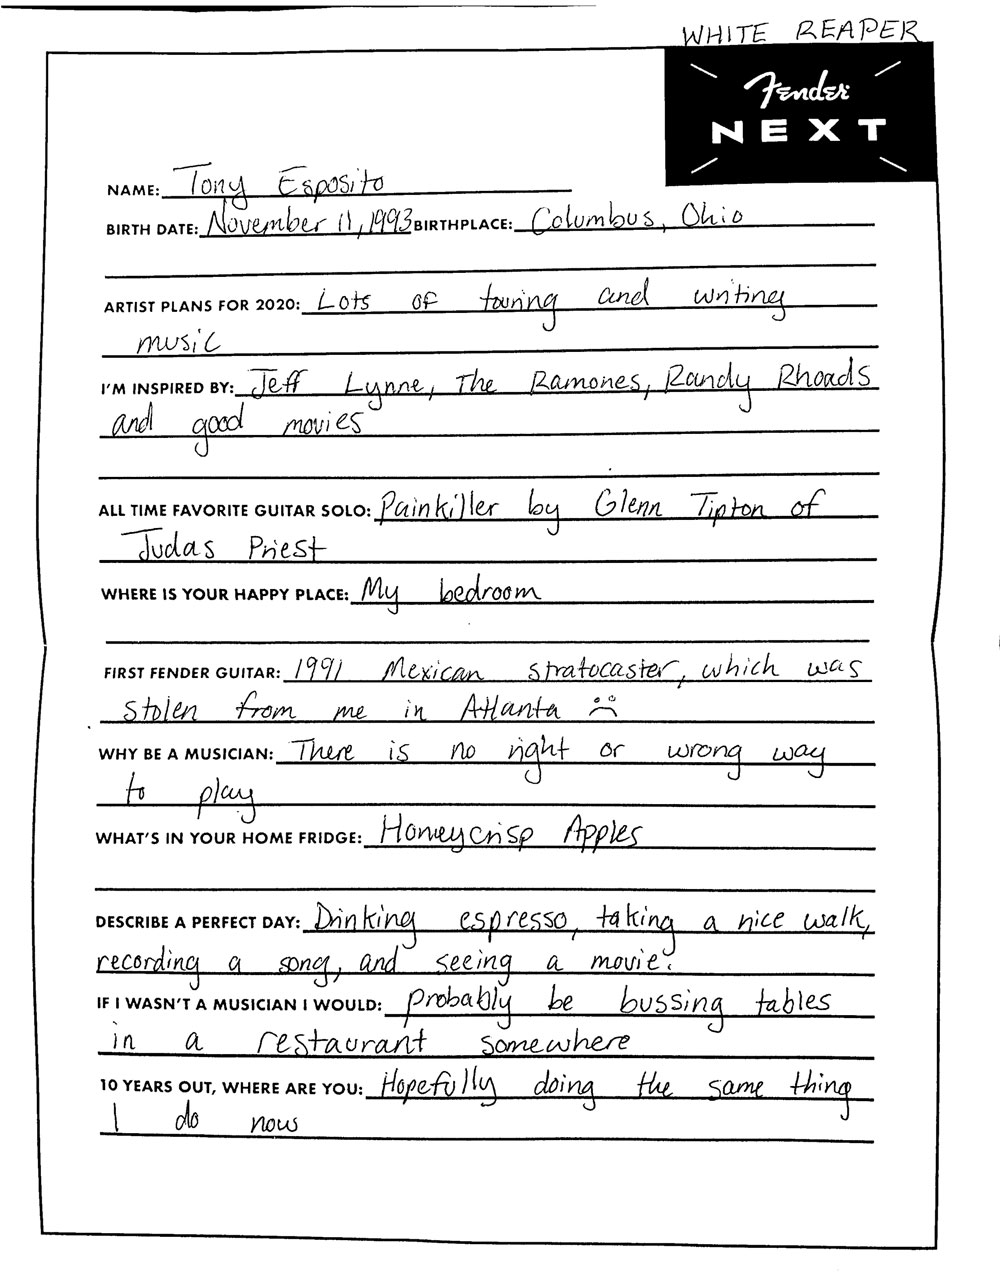 WHITE REAPER
Fender
NEXT
NAME: Tony Esposito
BIRTH DATE: November 11, 1993 BIRTHPLACE: Columbus, Ohio
ARTIST PLANS FOR 2020: Lots of touring and writing
music
I'M INSPIRED BY: Jeff Lynne, The Ramones, Randy Rhoads
and good movies
ALL TIME FAVORITE GUITAR SOLO: Painkiller by Glenn Tipton of
Judas Priest
WHERE IS YOUR HAPPY PLACE: My bedroom
FIRST FENDER GUITAR: 1991 Mexican stratocaster, which was
stolen from me in Atlanta ☹
WHY BE A MUSICIAN: There is no right or wrong way
to play
WHAT'S IN YOUR HOME FRIDGE: Honeycrisp Apples
DESCRIBE A PERFECT DAY: Drinking espresso, taking a nice walk,
recording a song, and seeing a movie.
IF I WASN'T A MUSICIAN I WOULD: probably be bussing tables
in a restaurant somewhere
10 YEARS OUT, WHERE ARE YOU: Hopefully doing the same thing
I do now